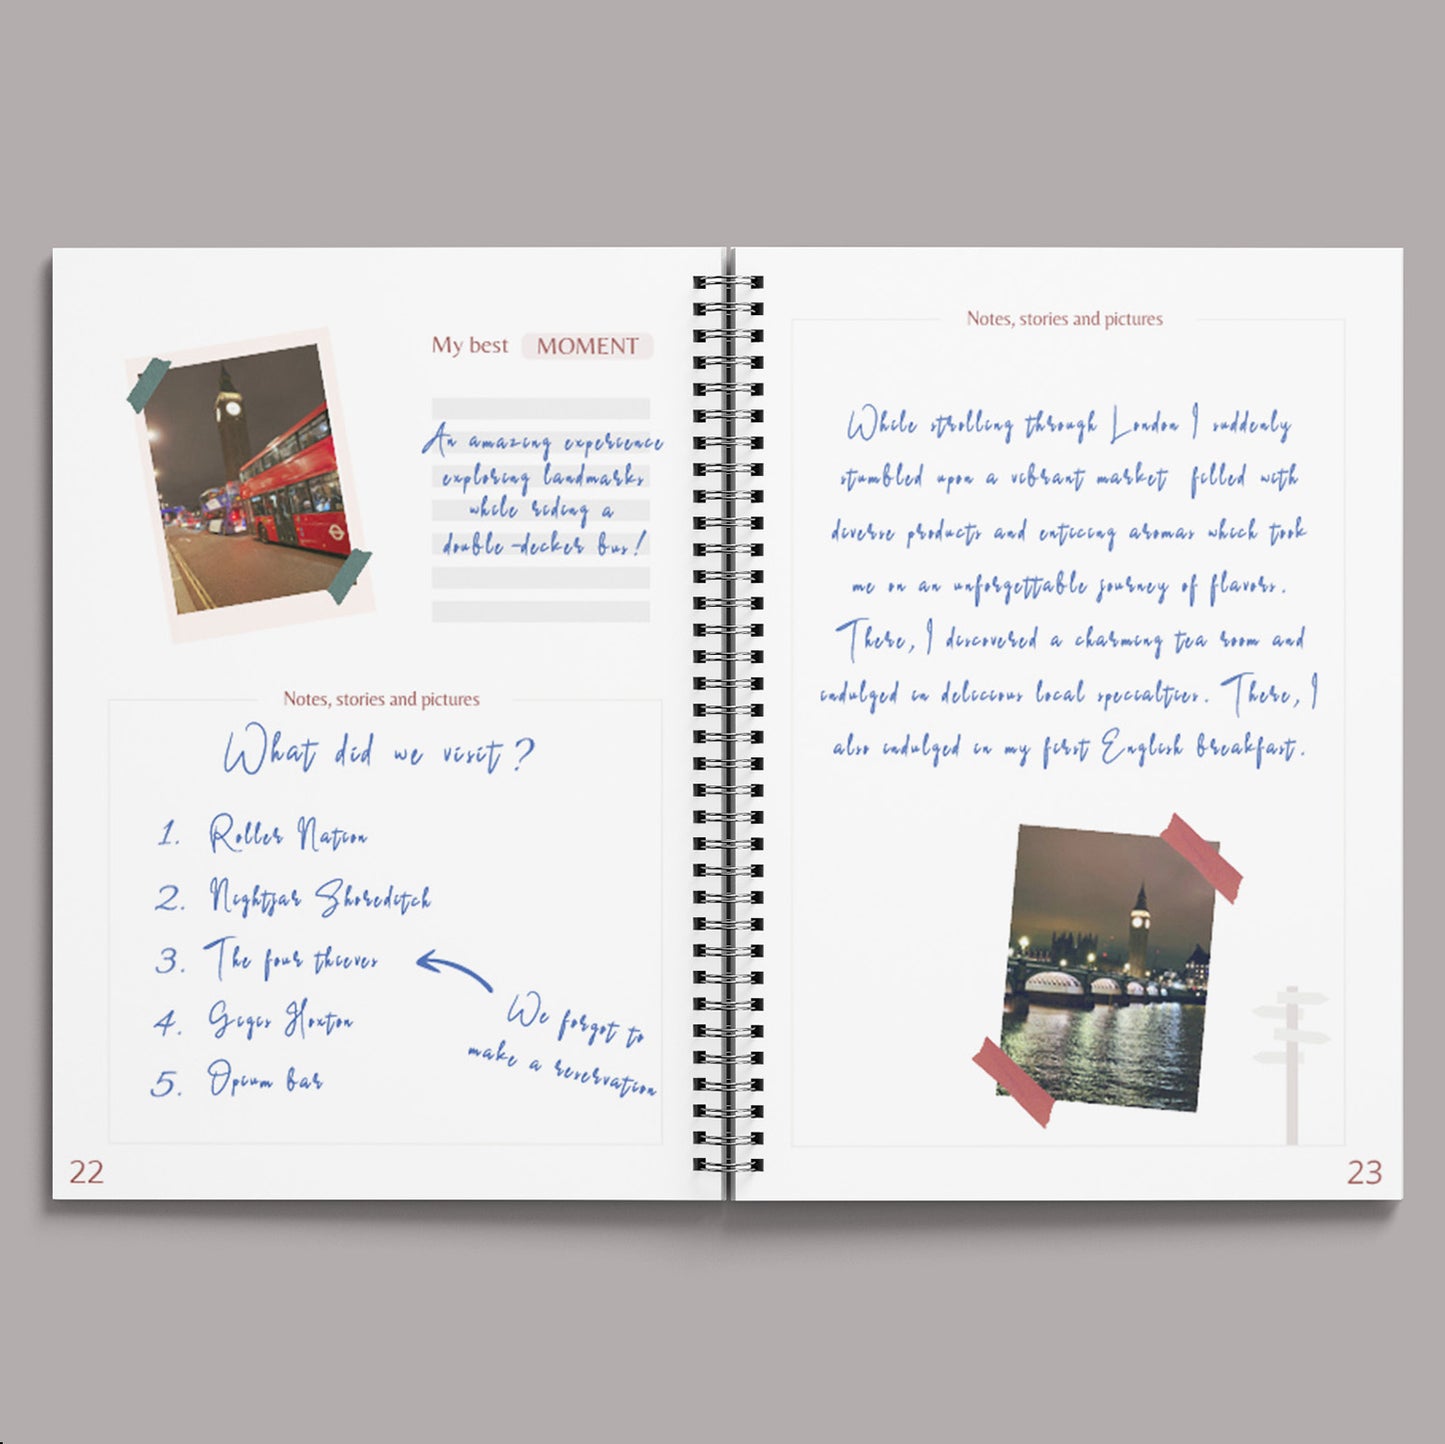 My best MOMENT
An amazing experience
exploring landmarks
while riding a
double-decker bus!
Notes, stories and pictures
What did we visit?
1. Roller Nation
2. Nightjar Shoreditch
3. The four thieves
4. Gigis Hoxton
5. Opium bar
We forgot to
make a reservation
22
Notes, stories and pictures
While strolling through London I suddenly
stumbled upon a vibrant market filled with
diverse products and enticing aromas which took
me on an unforgettable journey of flavors.
There, I discovered a charming tea room and
indulged in delicious local specialties. There, I
also indulged in my first English breakfast.
23